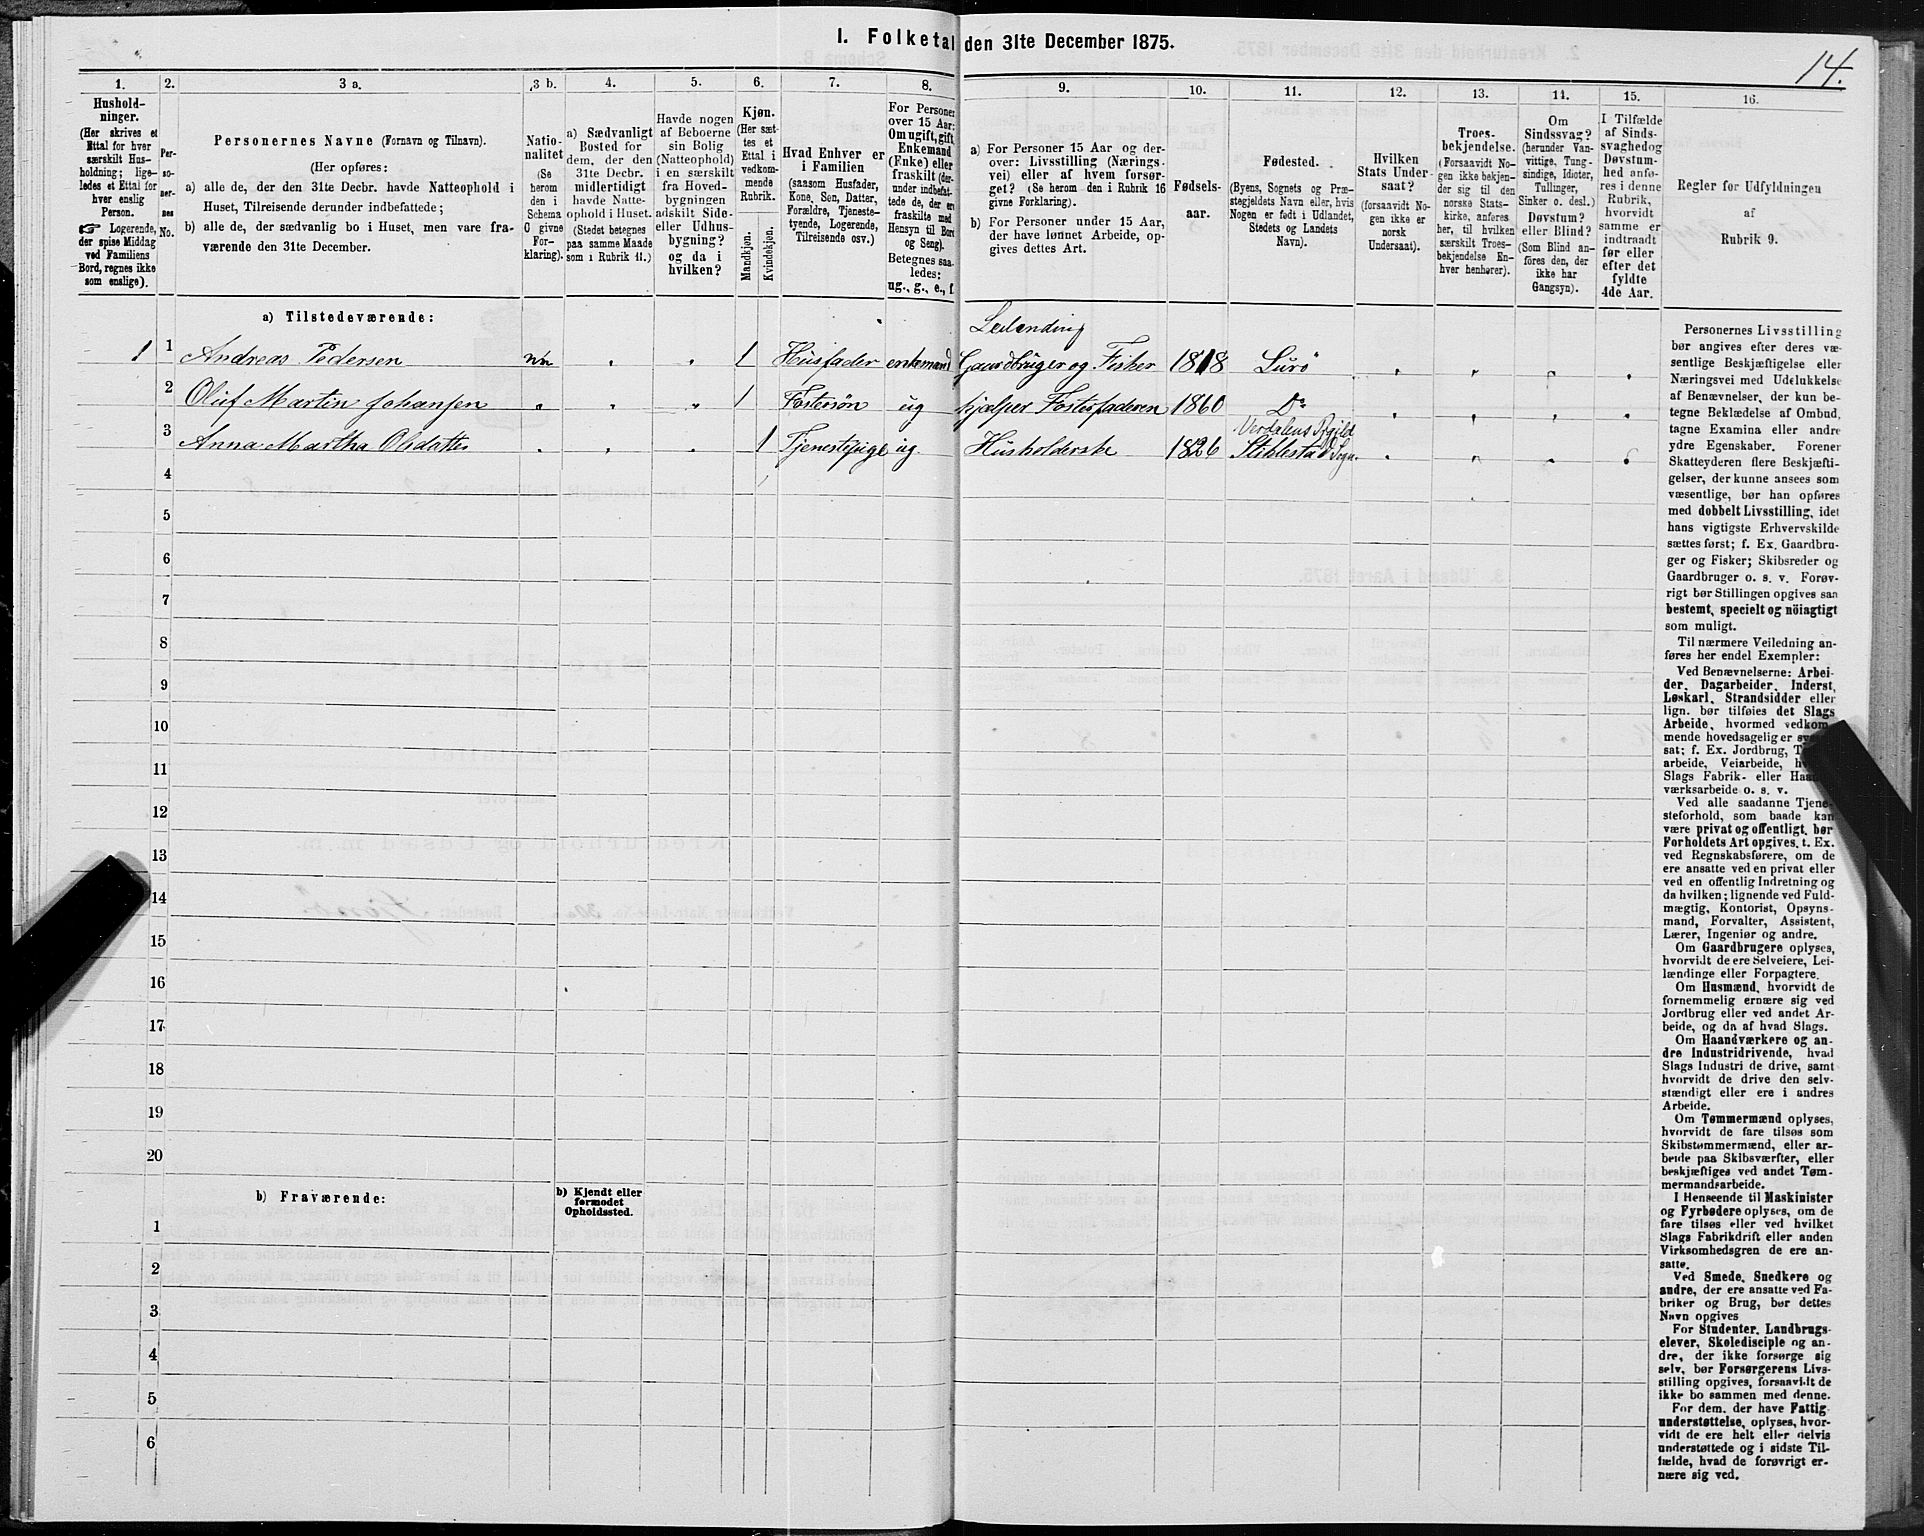 14.
I. Folketal den 31te December 1875.
1. 2. 3 a. 3 b. 4. 5. 6. 7. 8. 9. 10. 11. 12. 13. 14. 15. 16.
Hushold-
ninger.
(Her skrives et
Ettal for hver
særskilt Hus-
holdning; lige-
ledes et Ettal for
hver enslig
Person.
☞ Logerende,
der spise Middag
ved Familiens
Bord, regnes ikke
som enslige).
Per-
so-
ner-
nes
No.
Personernes Navne (Fornavn og Tilnavn).
(Her opføres:
a) alle de, der den 31te Decbr. havde Natteophold i
Huset, Tilreisende derunder indbefattede;
b) alle de, der sædvanlig bo i Huset, men vare fra-
værende den 31te December.
Natio-
nalitet
(Se
herom
den i
Schema
C givne
For-
klaring).
a) Sædvanligt
Bosted for
dem, der den
31te Decbr.
midlertidigt
havde Natte-
ophold i Huset.
(Stedet betegnes
paa samme Maade
som i Rubrik 11.)
Havde nogen
af Beboerne
sin Bolig
(Natteophold)
i en særskilt
fra Hoved-
bygningen
adskilt Side-
eller Udhus-
bygning?
og da i
hvilken?
Kjøn.
(Her sæt-
tes et
Ettal i
vedkom-
mende
Rubrik.
Mandkjøn.
Kvindekjøn.
Hvad Enhver er
i Familien
(saasom Husfader,
Kone, Søn, Datter,
Forældre, Tjeneste-
tyende, Logerende,
Tilreisende osv.)
For Personer
over 15 Aar:
Om ugift, gift,
Enkemand
(Enke) eller
fraskilt (der-
under indbefat-
tede de, der ere
fraskilte med
Hensyn til Bord
og Seng).
Betegnes saa-
ledes:
ug., g., e., f.
a) For Personer 15 Aar og der-
over: Livsstilling (Nærings-
vei) eller af hvem forsør-
get? (Se herom den i Rubrik 16
givne Forklaring).
b) For Personer under 15 Aar,
der have lønnet Arbeide, op-
gives dettes Art.
Fødsels-
aar.
Fødested.
(Byens, Sognets og Præ-
stegjeldets Navn eller, hvis
Nogen er født i Udlandet,
Stedets og Landets
Navn).
Hvilken
Stats Under-
saat?
(forsaavidt No-
gen ikke er
norsk
Undersaat).
Troes-
bekjendelse.
(Forsaavidt No-
gen ikke bekjen-
der sig til den
norske Stats-
kirke, anføres
her, til hvilken
særskilt Troes-
bekjendelse En-
hver henhører).
Om
Sindssvag?
(herunder Van-
vittige, Tung-
sindige, Idioter,
Tullinger,
Sinker o. desl.)
Døvstum?
eller Blind?
(Som Blind an-
føres den, der
ikke har
Gangsyn).
I Tilfælde
af Sinds-
svaghed og
Døvstum-
hed anfø-
res i denne
Rubrik,
hvorvidt
samme er
indtraadt
før eller
efter det
fyldte
4de Aar.
Regler for Udfyldningen
af
Rubrik 9.
a) Tilstedeværende:
Leilending
1 1 Andreas Pedersen nn " " 1 Husfader enkemand Gaardbruger og Fisker 1818 Lurö " " " "
2 Oluf Martin Johansen " " " 1 Fostersøn ug hjælper Fosterfaderen 1860 Do " " " "
Verdalens Pgjld
3 Anna Martha Olsdatter " " " 1 Tjenestepige ug. Husholderske 1826 Stiklestad Sogn. " " "
4
5
6
7
8
9
10
11
12
13
14
15
16
17
18
19
20
b) Fraværende:
b) Kjendt eller
formodet
Opholdssted.
1
2
3
4
5
6
Personernes Livsstilling
bør angives efter deres væ-
sentlige Beskjæftigelse eller
Næringsvei med Udelukkelse
af Benævnelser, der kun be-
tegne Beklædelse af Ombud,
tagne Examina eller andre
ydre Egenskaber. Forener
Skatteyderen flere Beskjæfti-
gelser, der kunne ansees som
væsentlige, bør han opføres
med dobbelt Livsstilling, idet
hans vigtigste Erhvervskilde
sættes først; f. Ex. Gaardbru-
ger og Fisker; Skibsreder og
Gaardbruger o. s. v. Forøv-
rigt bør Stillingen opgives saa
bestemt, specielt og nöiagtigt
som muligt.
Til nærmere Veiledning an-
føres her endel Exempler:
Ved Benævnelserne: Arbei-
der, Dagarbeider, Inderst,
Løskarl, Strandsidder eller
lign. bør tilføies det Slags
Arbeide, hvormed vedkom-
mende hovedsagelig er
sat; f. Ex. Jordbrug,
arbeide, Veiarbeide,
Slags Fabrik- eller
værksarbeide o. s. v.
Ved alle saadanne Tjene-
steforhold, som baade kan
være privat og offentligt, bør
Forholdets Art opgives, t. Ex.
ved Regnskabsførere, om de
ere ansatte ved en privat eller
ved en offentlig Indretning og
da hvilken; lignende ved Fuld-
mægtig, Kontorist, Opsyns-
mand, Forvalter, Assistent,
Lærer, Ingeniør og andre.
Om Gaardbrugere oplyses,
hvorvidt de ere Selveiere, Lei-
lændinge eller Forpagtere.
Om Husmænd, hvorvidt de
fornemmelig ernære sig ved
Jordbrug eller ved andet Ar-
beide, og da af hvad Slags.
Om Haandværkere og an-
dre Industridrivende, hvad
Slags Industri de drive, samt
hvorvidt de drive den selv-
stændigt eller ere i andres
Arbeide.
Om Tømmermænd oplyses,
hvorvidt de fare tilsøs som
Skibstømmermænd, eller ar-
beide paa Skibsværfter, eller
beskjæftiges ved andet Tøm-
mermandsarbeide.
I Henseende til Maskinister
og Fyrbødere oplyses, om de
fare tilsøs eller ved hvilket
Slags Fabrikdrift eller anden
Virksomhedsgren de ere an-
satte.
Ved Smede, Snedkere og
andre, der ere ansatte ved Fa-
briker og Brug, bør dettes
Navn opgives
For Studenter, Landbrugs-
elever, Skoledisciple og an-
dre, der ikke forsørge sig
selv, bør Forsørgerens Livs-
stilling opgives, forsaavidt de
ikke bo sammen med denne.
For dem, der have Fattig-
understøttelse, oplyses, hvor-
vidt de ere helt eller delvis
understøttede og i sidste Til-
fælde, hvad de forøvrigt er-
nære sig ved.